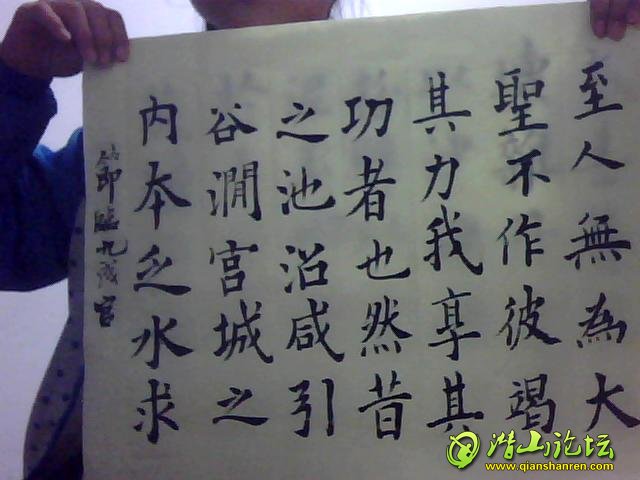 至人無為大
聖不作彼竭
其力我享其
功者也然昔
之池沼咸引
谷澗宮城之
內本乏水求
節臨九成宮
潜山论坛
www.qianshanren.com